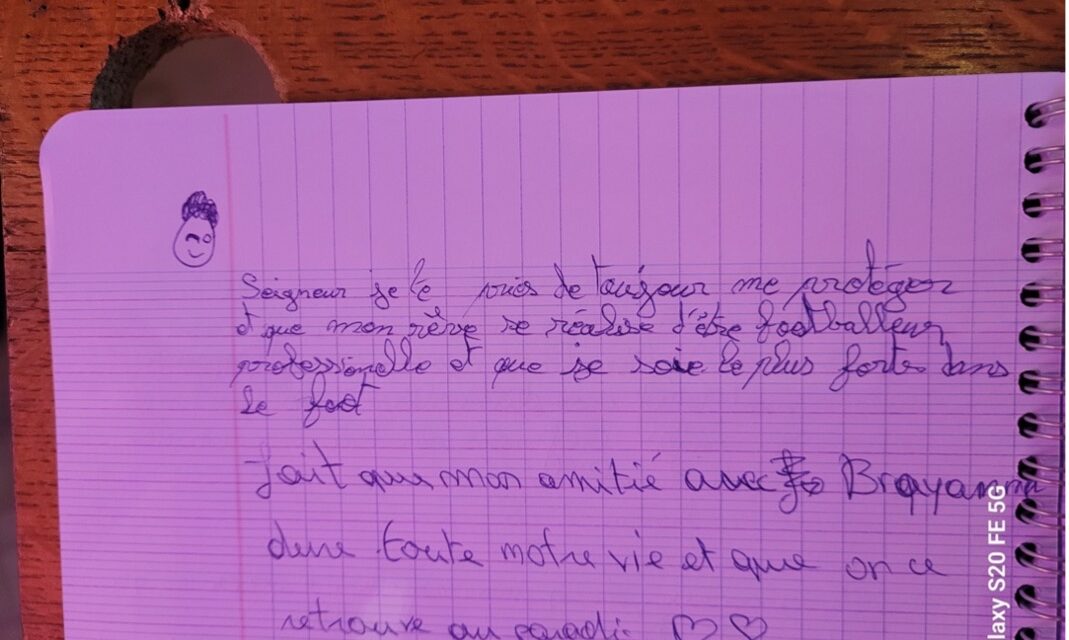 Seigneur je te pries de toujour me protéger
et que mon rêve se réalise d'être footballeur
professionnelle et que je soie le plus fortes dans
le foot
fait que mon amitié avec Brayann
dure toute notre vie et que on ce
retrouve au paradi
laxy S20 FE 5G